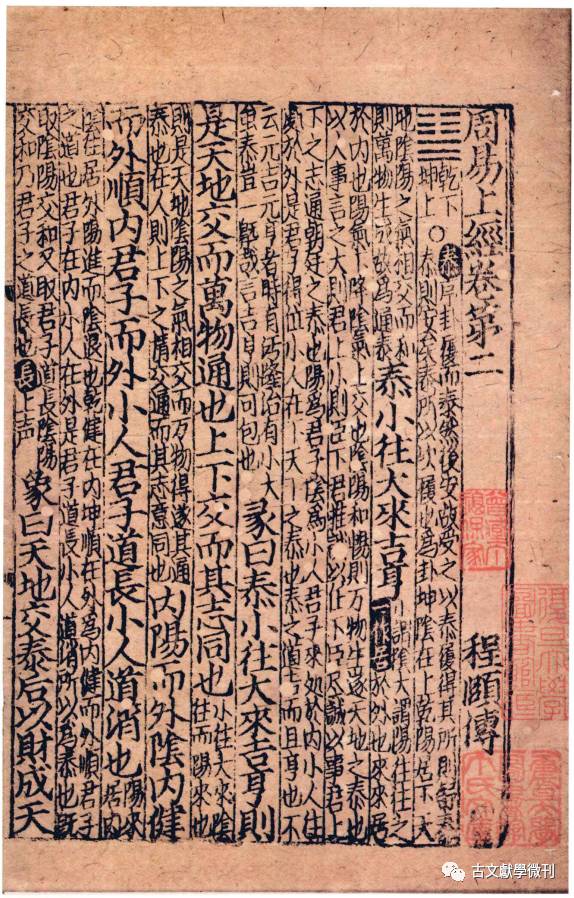 周易上經卷第二 程頤傳
䷊ 乾下坤上 ○ 泰 序卦履而泰然後安故受之以泰履得其所則舒泰
泰則安矣泰所以次履也為卦坤陰在上乾陽居下天
地陰陽之氣相交而和
則萬物生成故為通泰
泰小往大來吉亨
小謂陰大謂陽往往之
於外也來來居
於內也陽氣下降陰氣上交也陰陽和暢則万物生遂天地之泰也
以人事言之大則君上小則臣下君推誠以任下臣盡誠以事君上
下之志通朝廷之泰也陽為君子陰為小人君子來処於內小人往
處於外是君子得位小人在下天下之泰也泰之道吉而且亨也不
云元吉元亨者時有汚隆治有小大
雖泰豈一概哉言吉亨則可包也
彖曰泰小往大來吉亨則
是天地交而萬物通也上下交而其志同也
小往大來陰
往而陽來也
則是天地陰陽之氣相交而万物得遂其通
泰也在人則上下之情交通而其志意同也
內陽而外陰內健
而外順內君子而外小人君子道長小人道消也
陽來
居內
陰往居外陽進而陰退也乾健在內坤順在外為內健而外順君子
之道也君子在內小人在外是君子道長小人道消所以為泰也既
取陰陽交和又取君子道長陰陽
交和乃君子之道長也 長 上声
象曰天地交泰后以財成天
古文獻學微刊